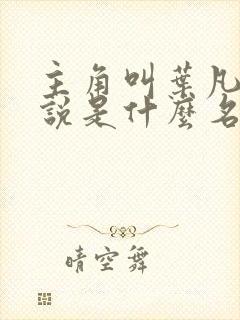 主角叫葉凡
說是什麼名
晴空舞